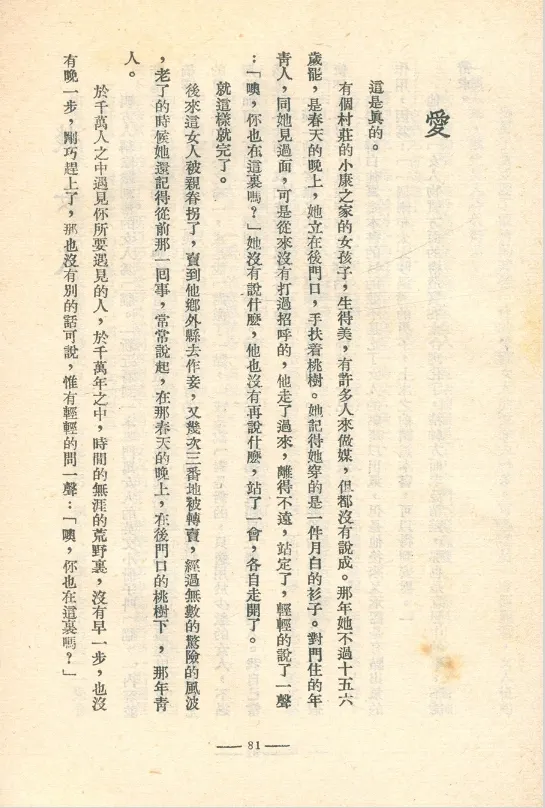 愛
這是眞的。
有個村莊的小康之家的女孩子，生得美，有許多人來做媒，但都沒有說成。那年她不過十五六
歲罷，是春天的晚上，她立在後門口，手扶着桃樹。她記得她穿的是一件月白的衫子。對門住的年
靑人，同她見過面，可是從來沒有打過招呼的，他走了過來，離得不遠，站定了，輕輕的說了一聲
：「噢，你也在這裏嗎？」她沒有說什麽，他也沒有再說什麽，站了一會，各自走開了。
就這樣就完了。
後來這女人被親眷拐了，賣到他鄉外縣去作妾，又幾次三番地被轉賣，經過無數的驚險的風波
，老了的時候她還記得從前那一回事，常常說起，在那春天的晚上，在後門口的桃樹下，那年靑
人。
於千萬人之中遇見你所要遇見的人，於千萬年之中，時間的無涯的荒野裏，沒有早一步，也沒
有晚一步，剛巧趕上了，那也沒有別的話可說，惟有輕輕的問一聲：「噢，你也在這裏嗎？」
— 81 —